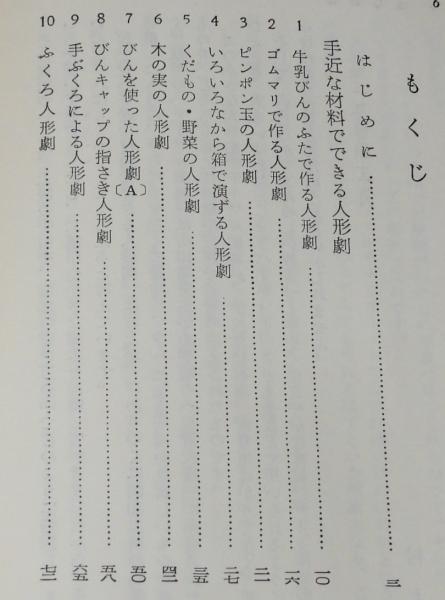 もくじ
はじめに…………三
手近な材料でできる人形劇
1 牛乳びんのふたで作る人形劇…………一〇
2 ゴムマリで作る人形劇…………一六
3 ピンポン玉の人形劇…………二一
4 いろいろなから箱で演ずる人形劇…………二七
5 くだもの・野菜の人形劇…………三五
6 木の実の人形劇…………四二
7 びんを使った人形劇〔A〕…………五〇
8 びんキャップの指さき人形劇…………五八
9 手ぶくろによる人形劇…………六五
10 ふくろ人形劇…………七二